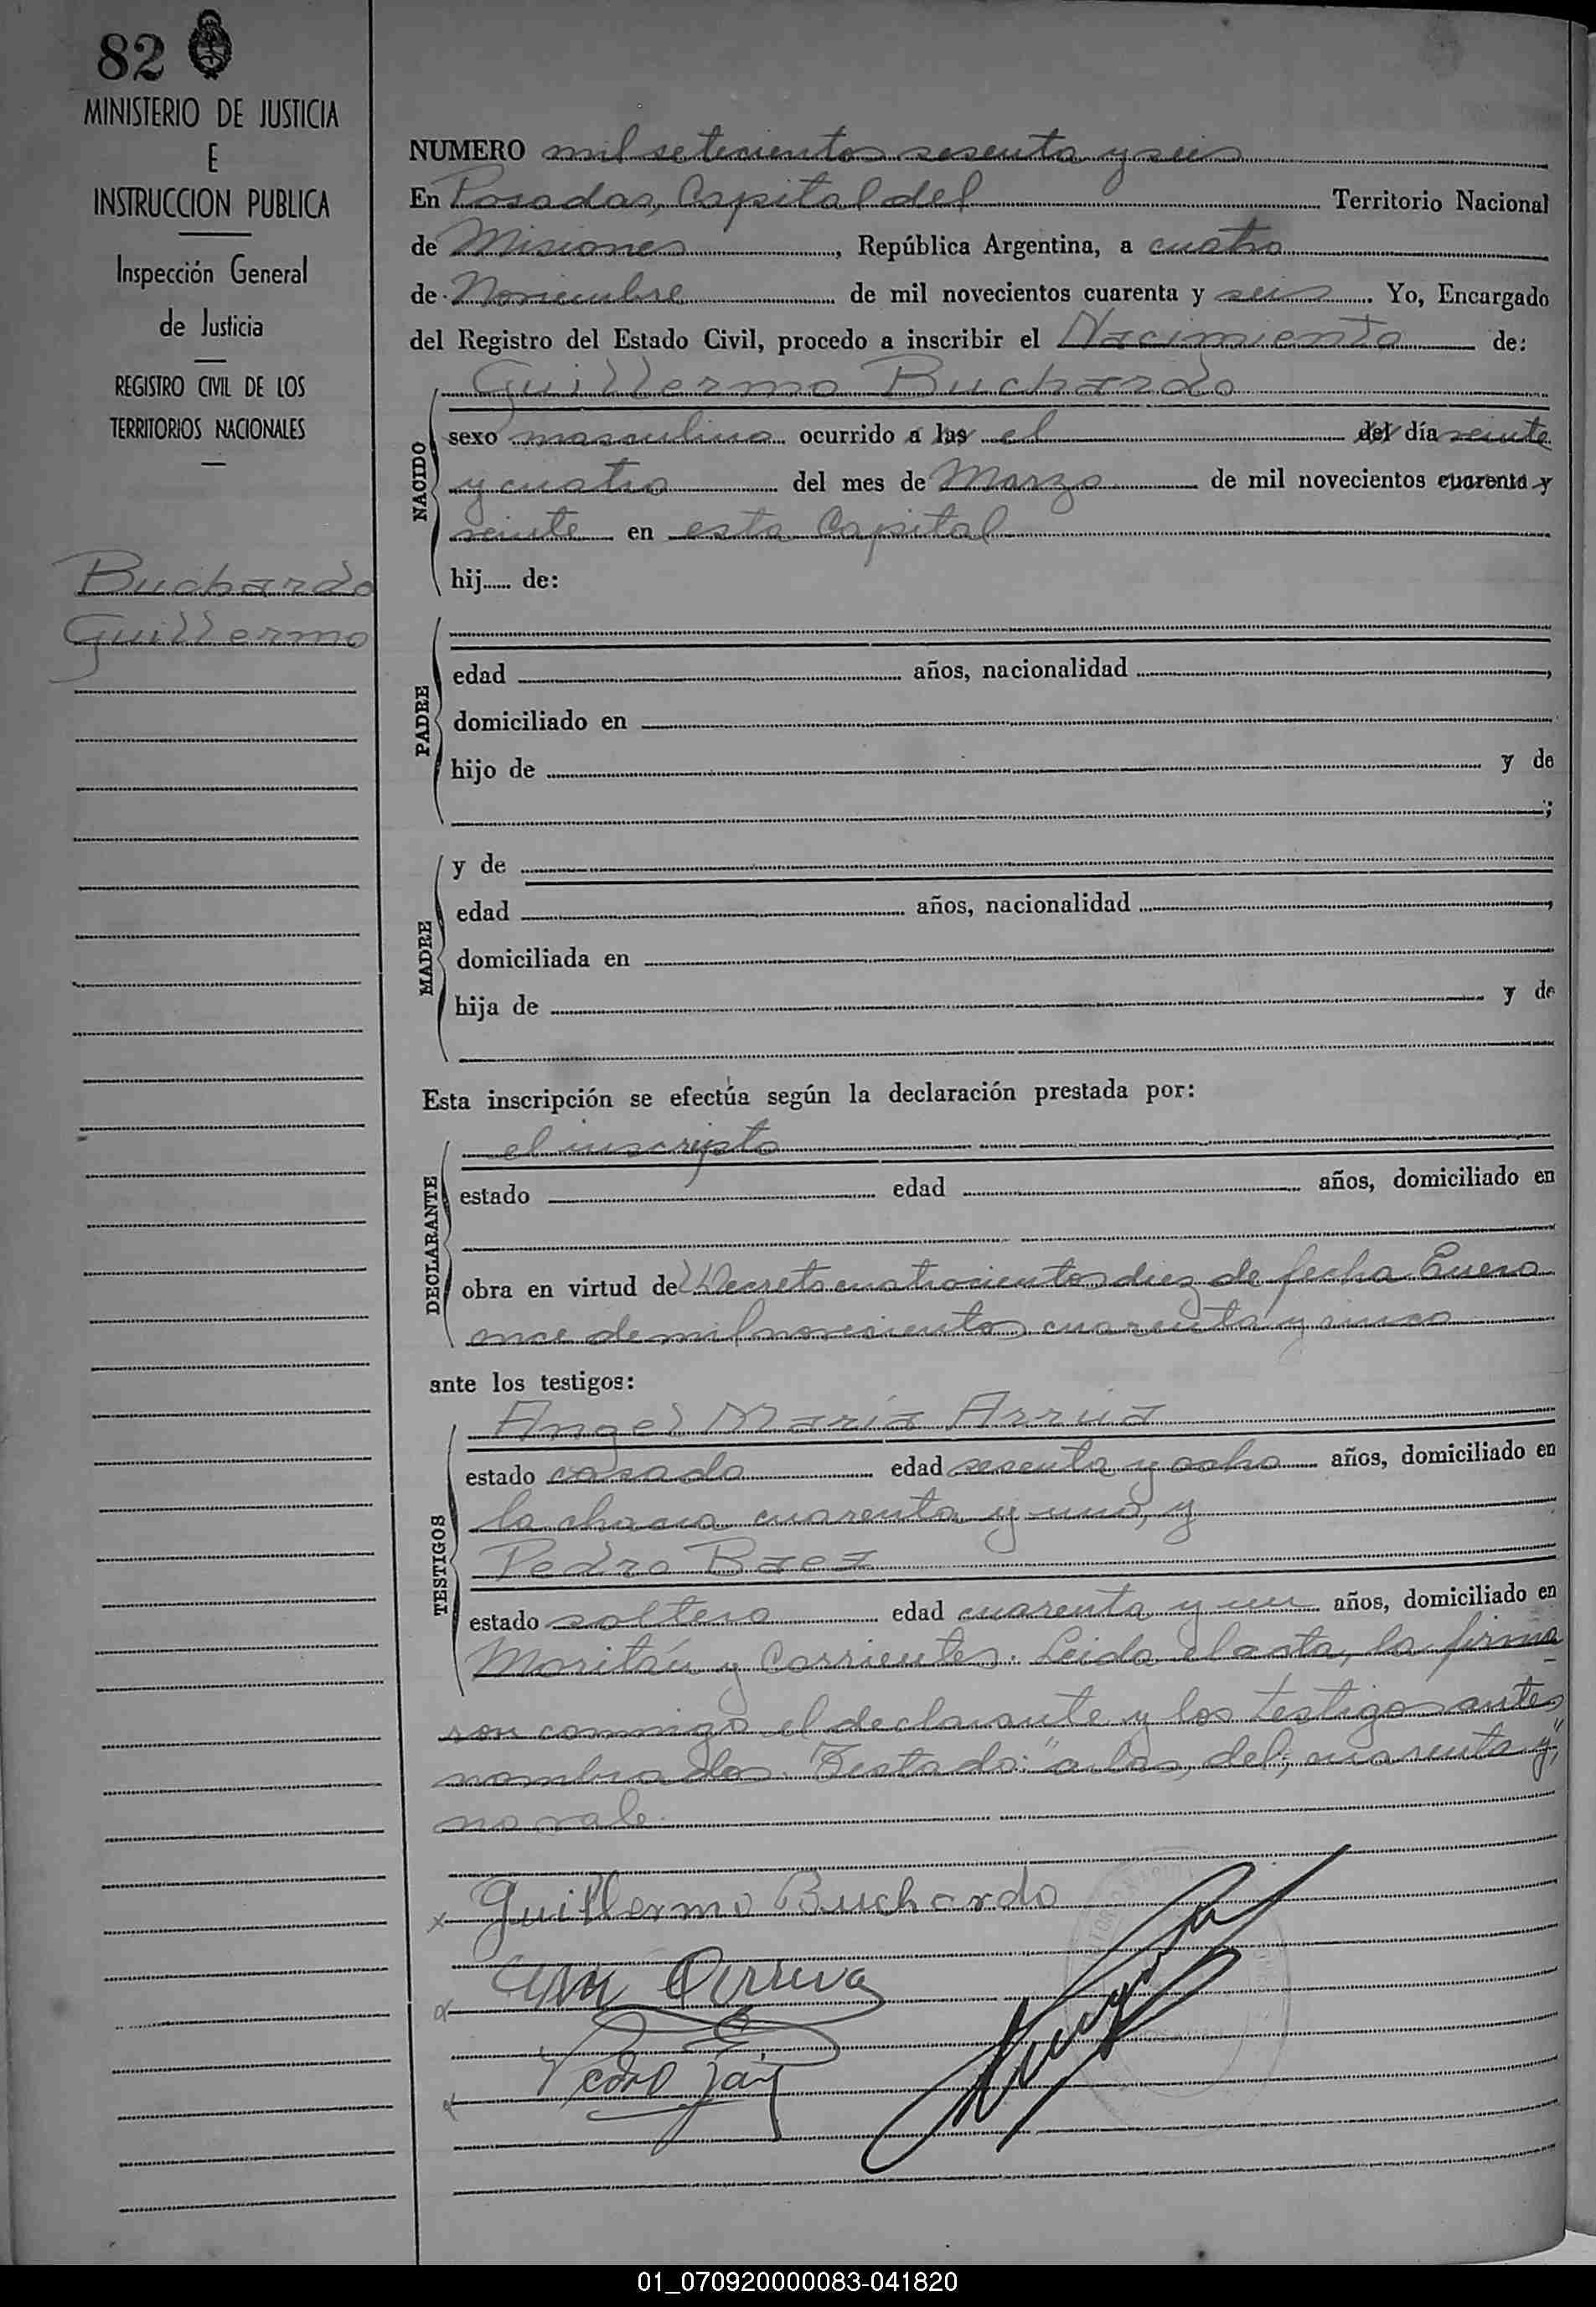 82
MINISTERIO DE JUSTICIA
E
INSTRUCCION PUBLICA
Inspección General
de Justicia
REGISTRO CIVIL DE LOS
TERRITORIOS NACIONALES
Buchardo
Guillermo
NUMERO mil setecientos sesenta y seis
En Posadas, Capital del Territorio Nacional
de Misiones, República Argentina, a cuatro
de Noviembre de mil novecientos cuarenta y seis. Yo, Encargado
del Registro del Estado Civil, procedo a inscribir el Nacimiento de:
NACIDO
Guillermo Buchardo
sexo masculino ocurrido a las el del día veinte
y cuatro del mes de Marzo de mil novecientos cuarenta y
veinte en esta Capital
hij...... de:
PADRE
edad años, nacionalidad ,
domiciliado en
hijo de y de
;
MADRE
y de
edad años, nacionalidad ,
domiciliada en
hija de y de
Esta inscripción se efectúa según la declaración prestada por:
DECLARANTE
el inscripto
estado edad años, domiciliado en
obra en virtud de Decreto cuatrocientos diez de fecha Enero
once de mil novecientos cuarenta y cinco
ante los testigos:
TESTIGOS
Angel María Arrúa
estado casado edad sesenta y ocho años, domiciliado en
la chacra cuarenta y uno, y
Pedro Baez
estado soltero edad cuarenta y un años, domiciliado en
Moritán y Corrientes. Leida el acta, la firma-
ron conmigo el declarante y los testigos antes
nombrados. Testado: "a las, del, cuarenta y",
no vale.
x Guillermo Buchardo
Arrua
Pedro
01_070920000083-041820